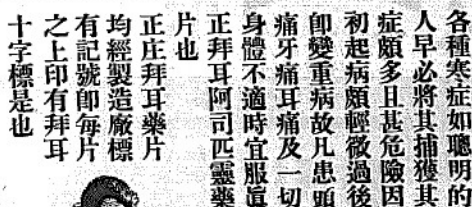 各種寒症如聰明的
人早必將其捕獲其
症頗多且甚危險因
初起病頗輕微過後
卽變重病故凡患頭
痛牙痛耳痛及一切
身體不適時宜服眞
正拜耳阿司匹靈藥
片也
正庄拜耳藥片
均經製造廠標
有記號卽每片
之上印有拜耳
十字標是也